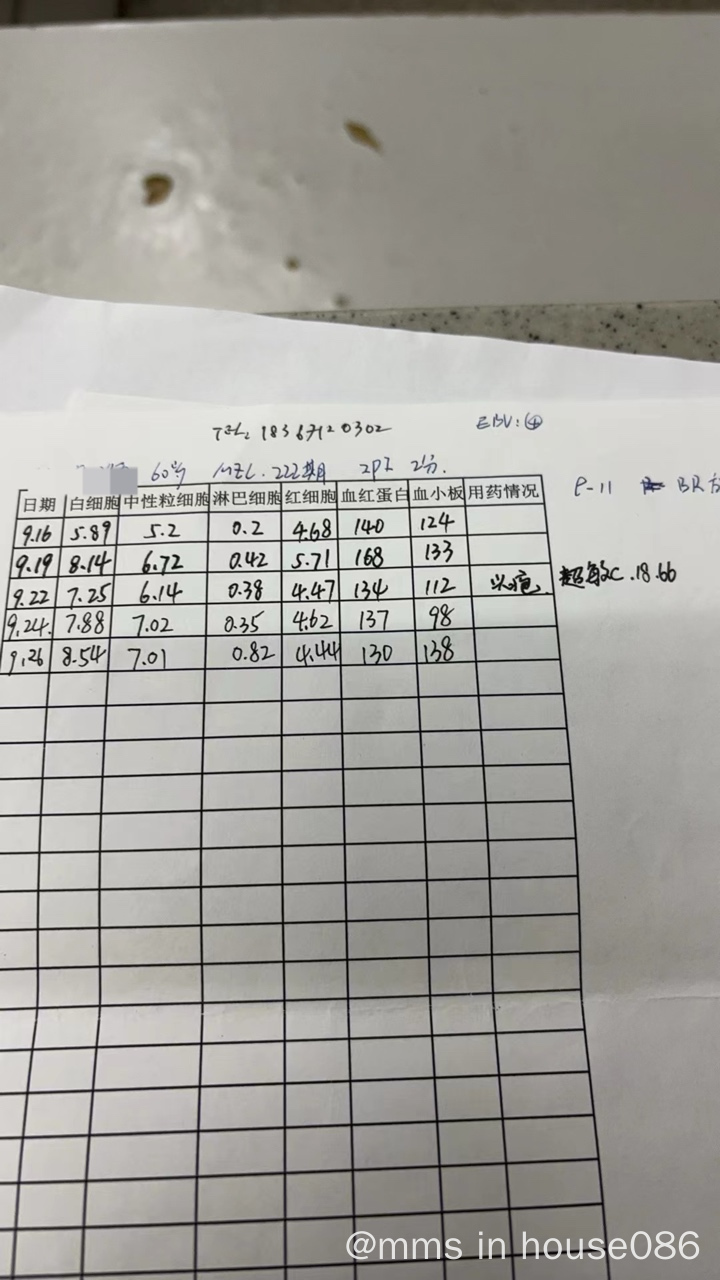 Tel: 18367120302
EBV: ⊕
60岁 MZL. 222期 IPI 2分.
9-11 BR方
日期 白细胞 中性粒细胞 淋巴细胞 红细胞 血红蛋白 血小板 用药情况
9.16 5.89 5.2 0.2 4.68 140 124
9.19 8.14 6.72 0.42 5.71 168 133
9.22 7.25 6.14 0.38 4.47 134 112 头孢 超敏C.18.66
9.24. 7.88 7.02 0.35 4.62 137 98
9.26 8.54 7.01 0.82 4.44 130 138
@mms in house086